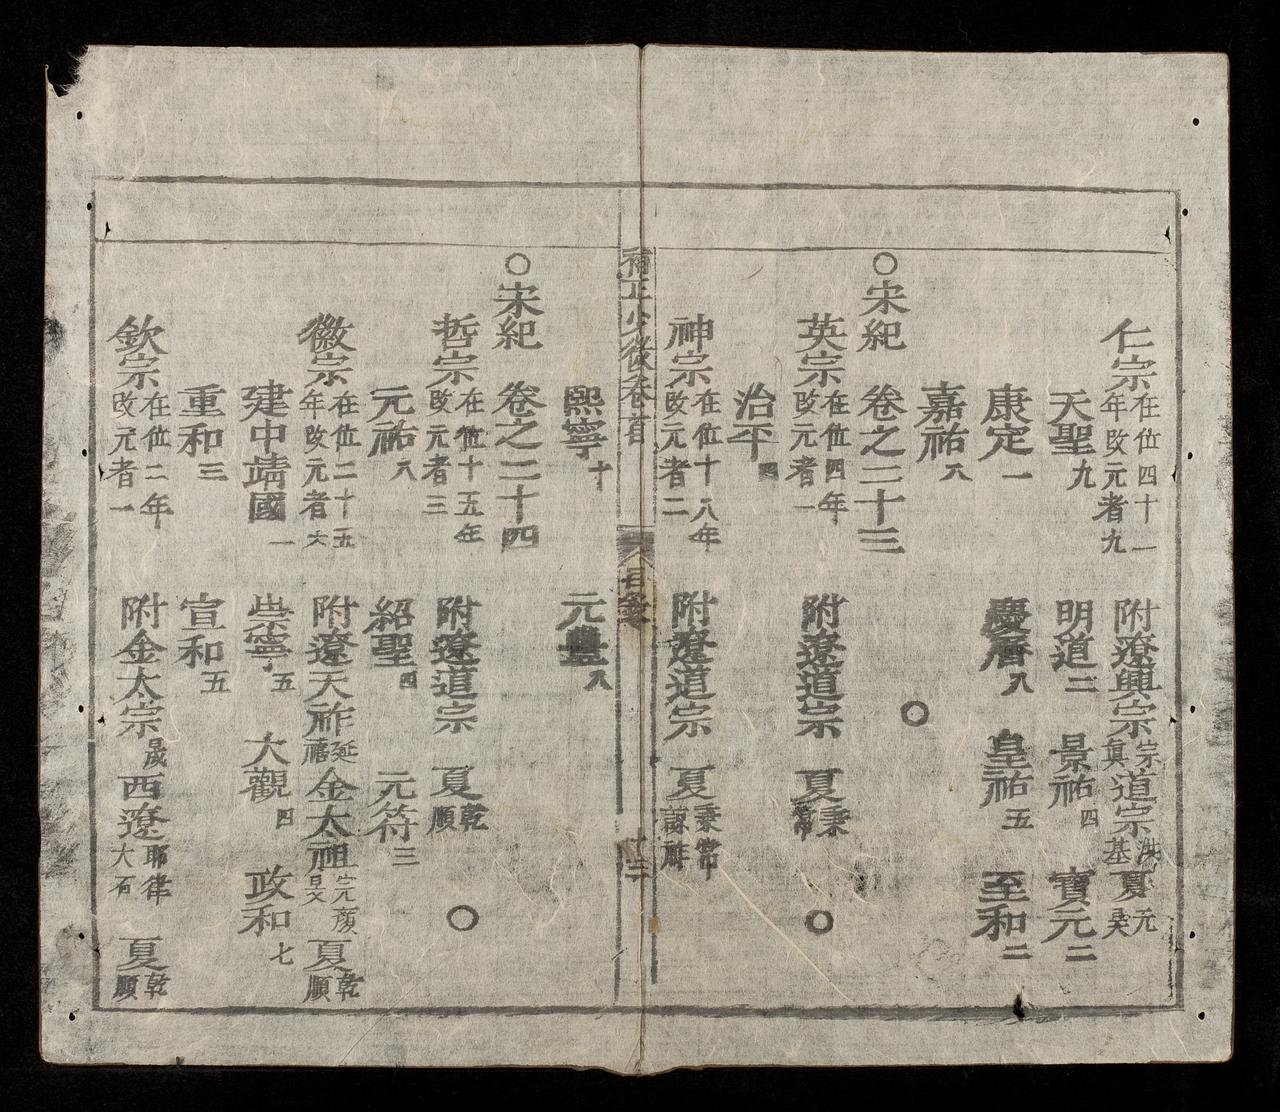 仁宗在位四十一年改元者九 附遼興宗宗真道宗洪基夏元昊
天聖九 明道二 景祐四 寶元二
康定一 慶曆八 皇祐五 至和二
嘉祐八 ○
○宋紀 卷之二十三
英宗在位四年改元者一 附遼道宗 夏秉常 ○
治平四
神宗在位十八年改元者二 附遼道宗 夏秉常諒祚
熙寧十 元豐八
補正少微卷首 目錄 十二
○宋紀 卷之二十四
哲宗在位十五年改元者三 附遼道宗 夏乾順 ○
元祐八 紹聖四 元符三
徽宗在位二十五年改元者六 附遼天祚延禧金太祖完顏旻夏乾順
建中靖國一 崇寧五 大觀四 政和七
重和三 宣和五
欽宗在位二年改元者一 附金太宗晟西遼耶律大石 夏乾順